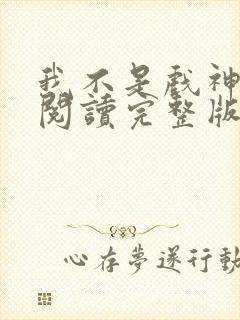 我不是戲神
閱讀完整版
心存夢遂行動